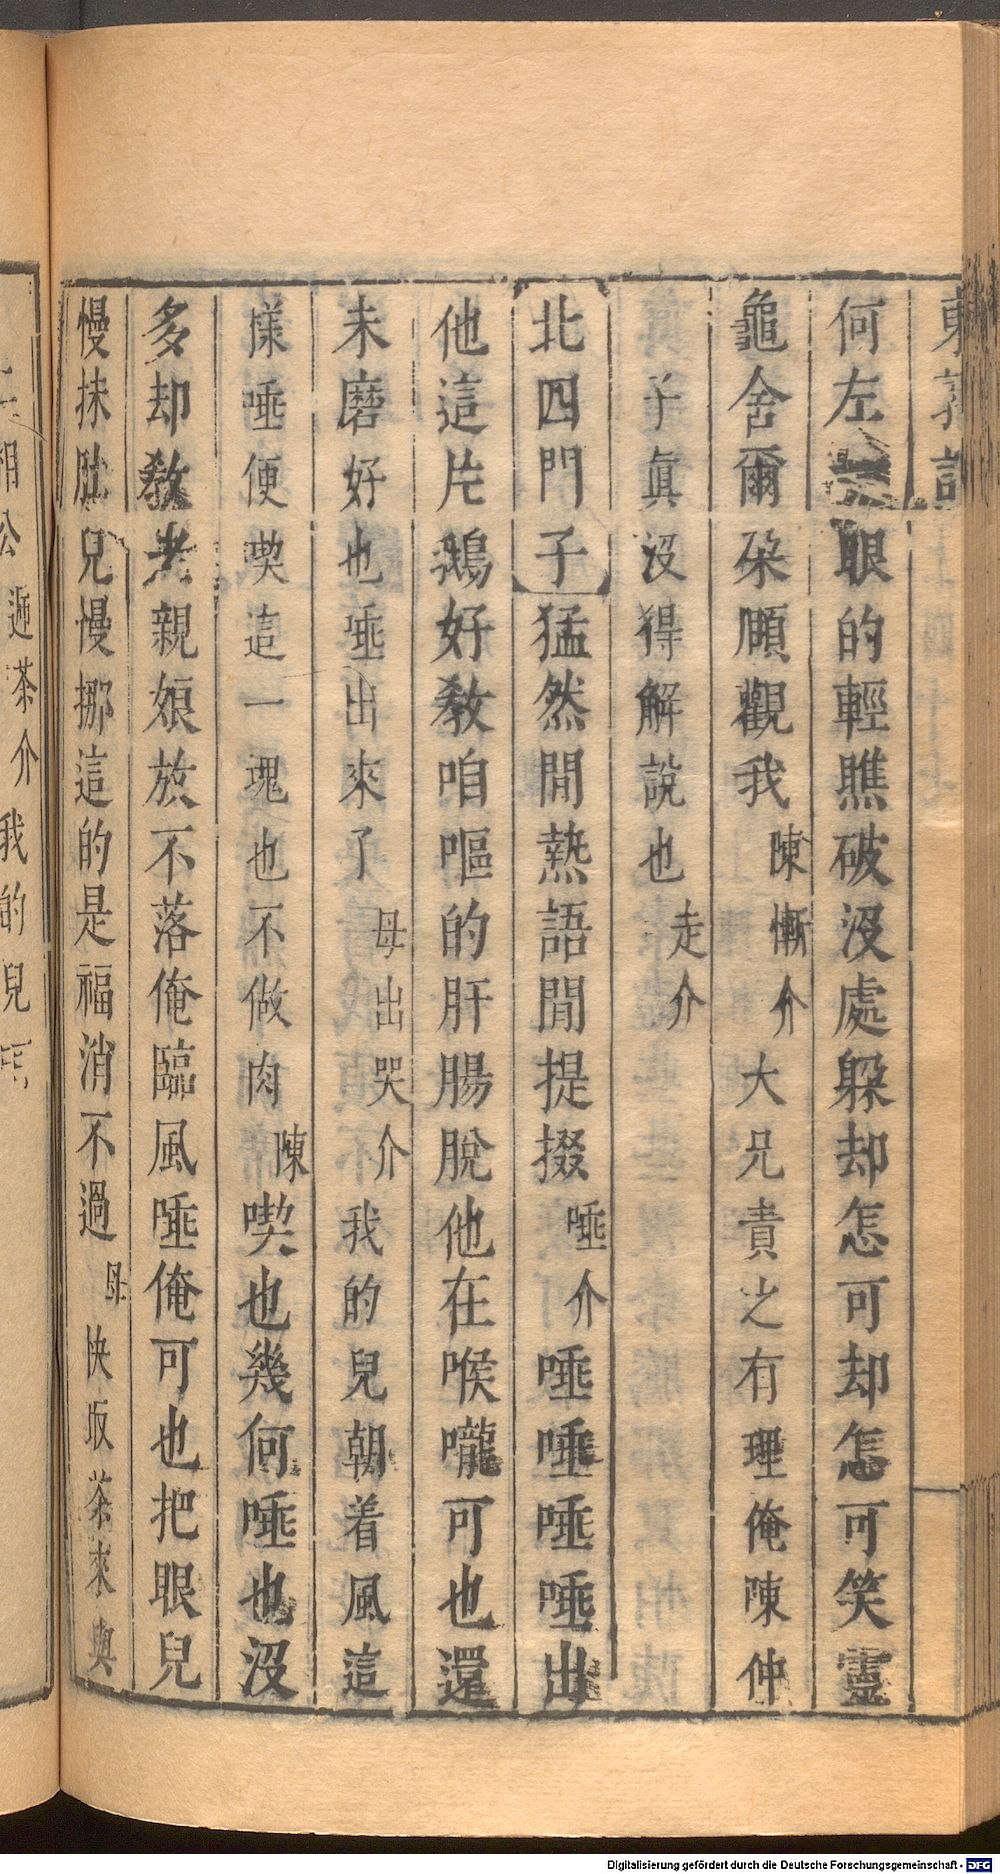 東郭記
何左 眼的輕瞧破没處躲却怎可却怎可笑靈
龜舍爾朶頥觀我 陳慚介 大兄責之有理俺陳仲
子眞没得解說也 走介
北四門子 猛然間熱語間提掇 唾介 唾唾唾唾出
他這片鵝好敎咱嘔的肝腸脫他在喉嚨可也還
未磨好也唾出來了 母出哭介 我的兒朝着風這
樣唾便喫這一塊也不做肉 陳 喫也幾何唾也没
多却敎老親娘放不落俺臨風唾俺可也把眼兒
慢抹肚兒慢挪這的是福消不過 母 快取茶來與
相公 遞茶介 我的兒
Digitalisierung gefördert durch die Deutsche Forschungsgemeinschaft - DFG